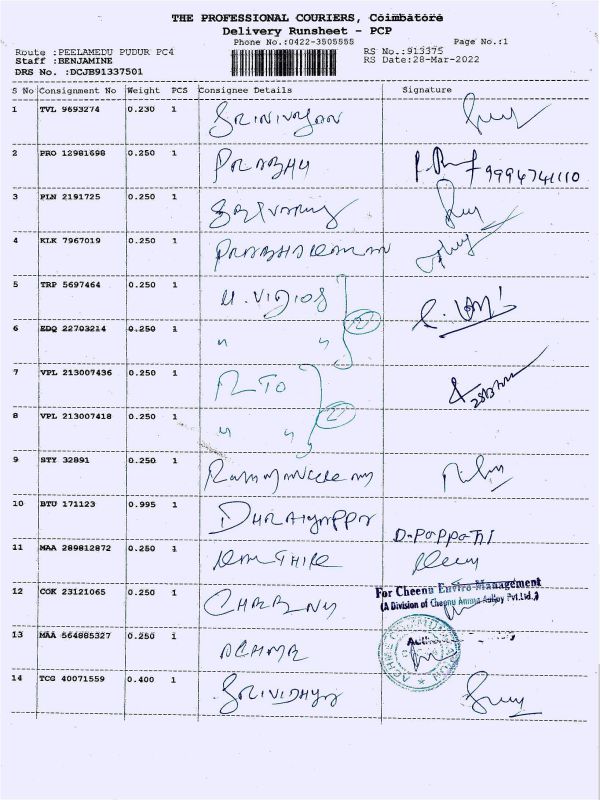 THE PROFESSIONAL COURIERS, Coimbatore
Delivery Runsheet - PCP
Phone No.:0422-3505555 Page No.:1
Route :PEELAMEDU PUDUR PC4 RS No.:913375
Staff :BENJAMINE RS Date:28-Mar-2022
DRS No. :DCJB91337501
S No Consignment No Weight PCS Consignee Details Signature
1 TVL 9693274 0.230 1
2 PRO 12981698 0.250 1 PRABHU 9994741110
3 PLN 2191725 0.250 1
4 KLK 7967019 0.250 1 PRABHAKARAN
5 TRP 5697464 0.250 1
6 EDQ 22703214 0.250 1 " "
7 VPL 213007436 0.250 1 RTO
8 VPL 213007418 0.250 1 " "
9 STY 32891 0.250 1
10 BTU 171123 0.995 1 D.PAPPATHI
11 MAA 289812872 0.250 1
For Cheenu Enviro Management
12 COK 23121065 0.250 1 (A Division of Cheenu Pvt.Ltd.,)
13 MAA 564885327 0.250 1
14 TCG 40071559 0.400 1 SRIVIDHYA